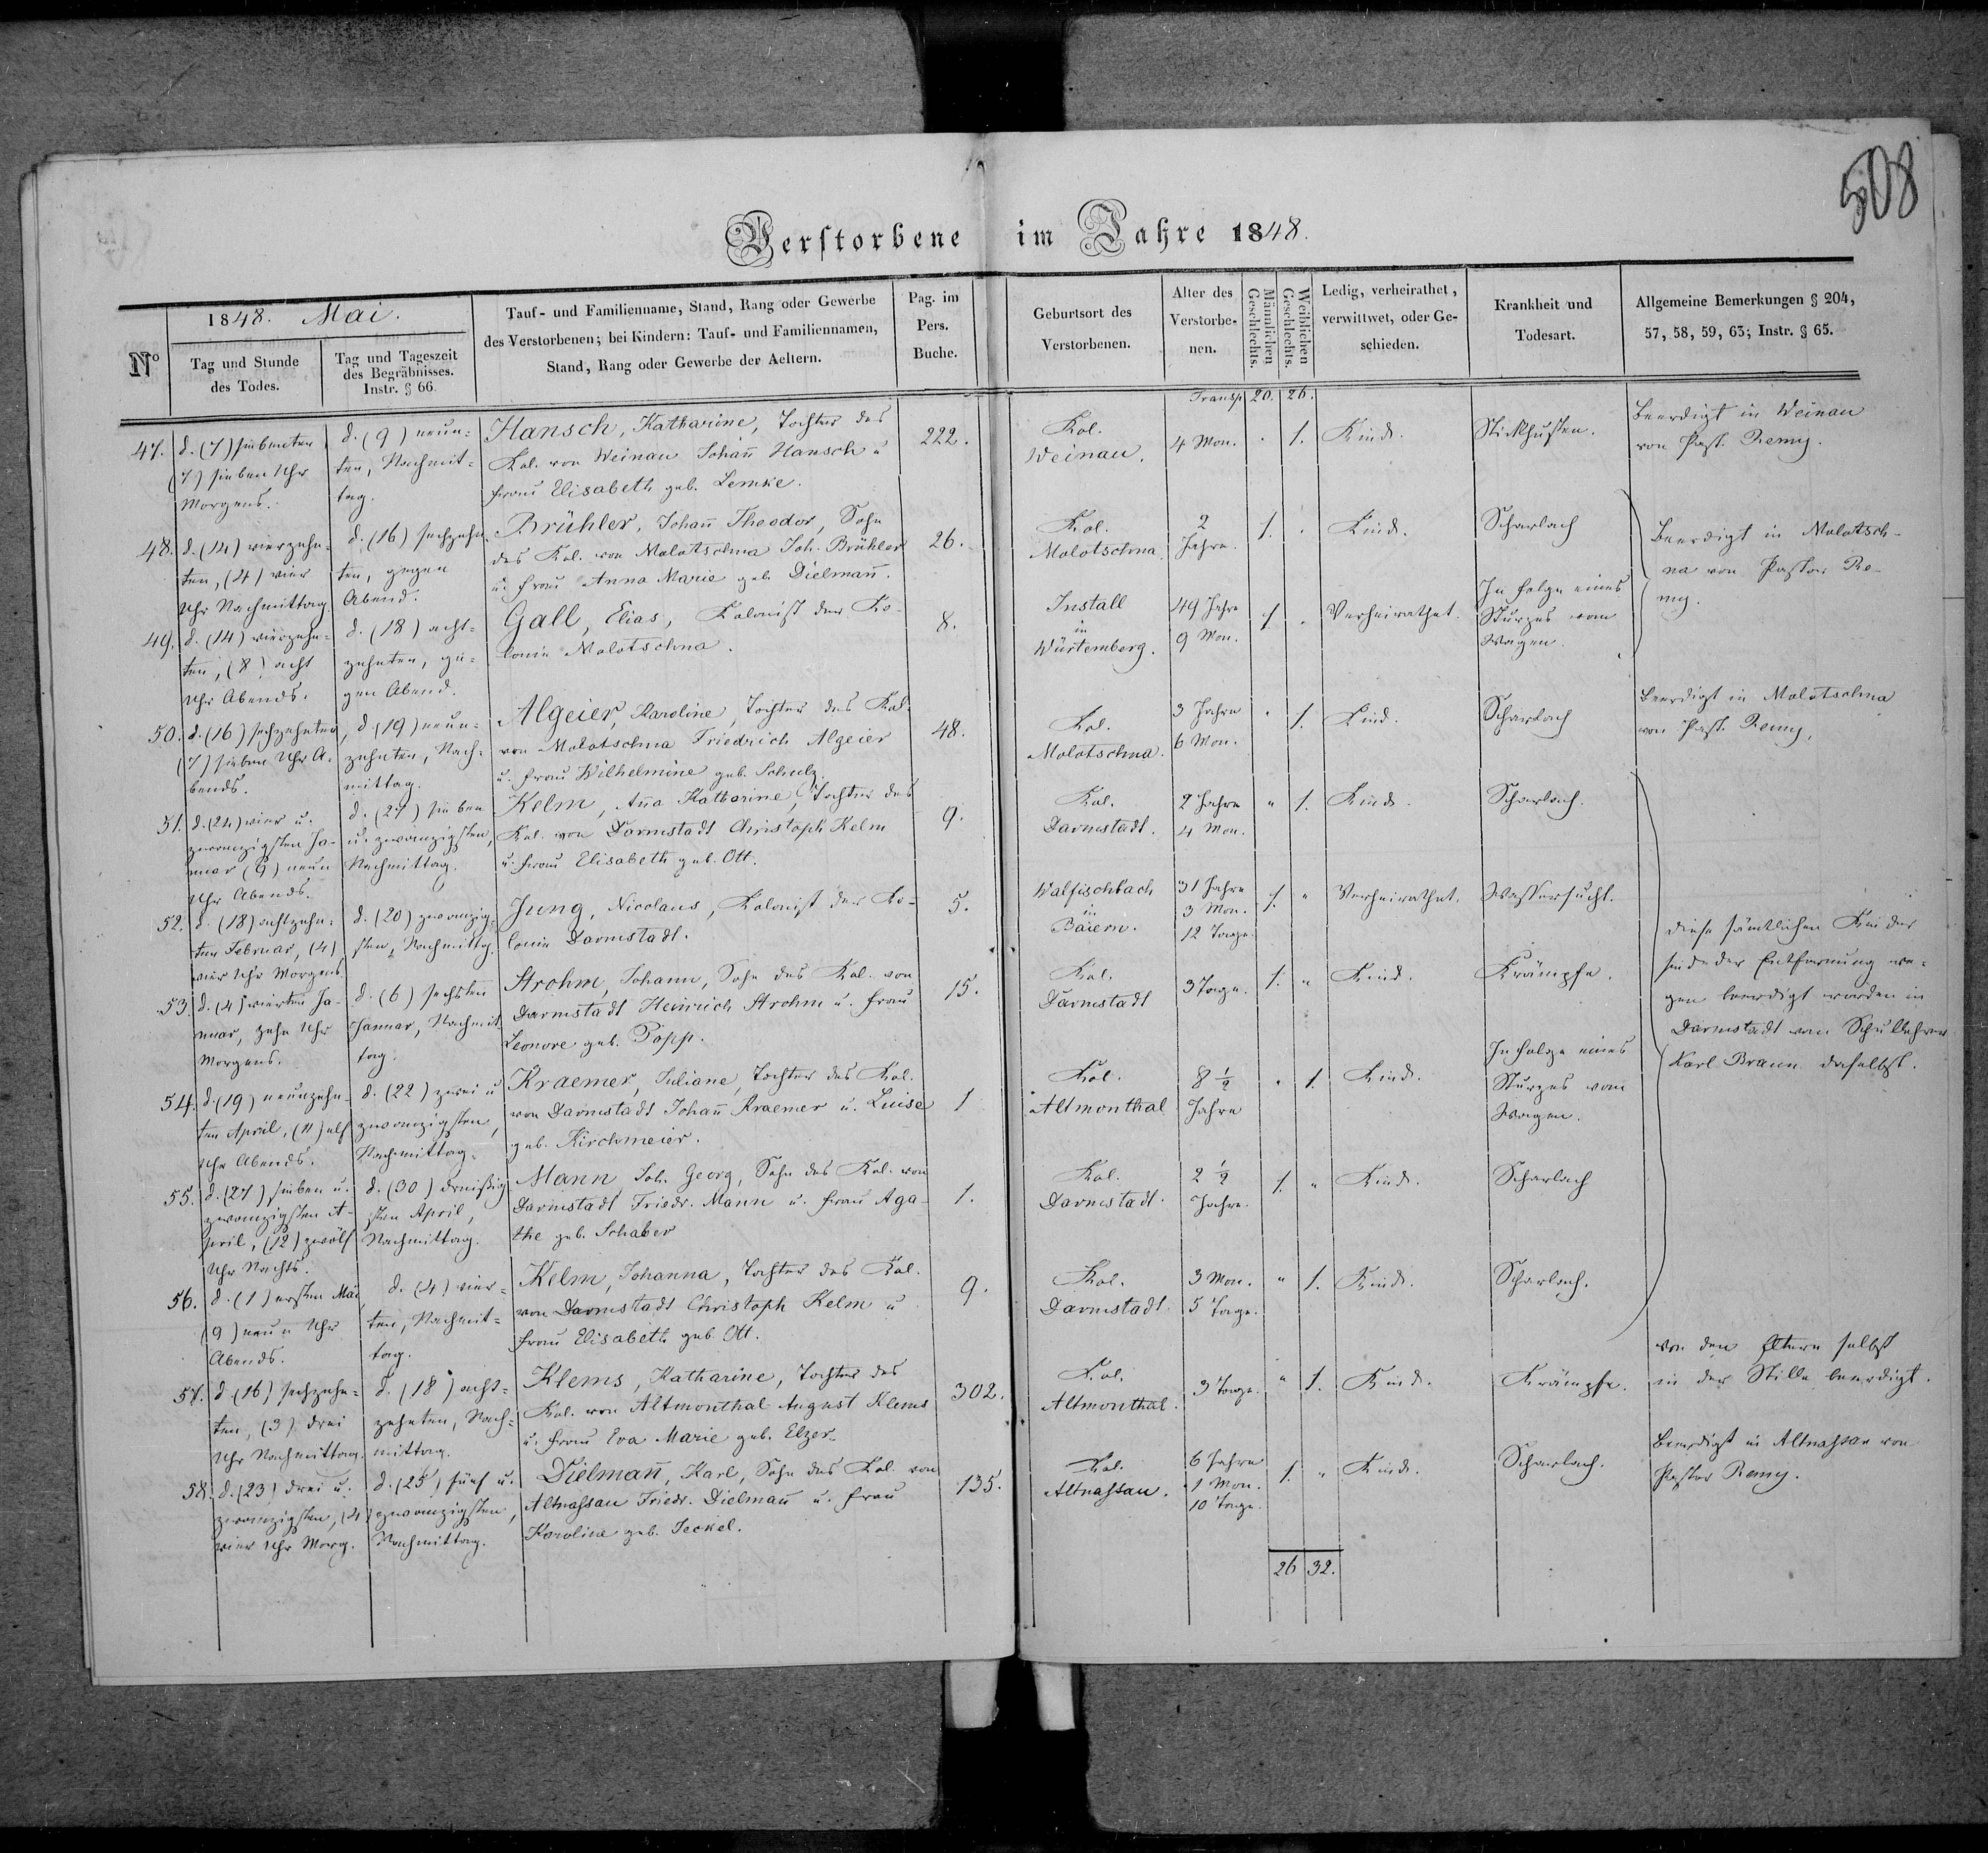 508
Verstorbene im Jahre 1848.
Nº
1848. Mai.
Tag und Stunde
des Todes.
Tag und Tageszeit
des Begräbnisses.
Instr. § 66.
Tauf- und Familienname, Stand, Rang oder Gewerbe
des Verstorbenen; bei Kindern: Tauf- und Familiennamen,
Stand, Rang oder Gewerbe der Aeltern.
Pag. im
Pers.
Buche.
Geburtsort des
Verstorbenen.
Alter des
Verstorbe-
nen.
Männlichen
Geschlechts.
Weiblichen
Geschlechts.
Ledig, verheirathet,
verwittwet, oder Ge-
schieden.
Krankheit und
Todesart.
Allgemeine Bemerkungen § 204,
57, 58, 59, 63; Instr. § 65.
Transp. 20. 26.
47.
d. (7) siebenten
(7) sieben Uhr
Morgens.
d. (9) neun-
ten, Nachmit-
tag.
Hansch, Katharine, Tochter des
Kol. von Weinau Johañ Hansch u
Frau Elisabeth geb. Lemke.
222.
Kol.
Weinau.
4 Mon.
"
1.
Kind.
Stickhusten.
Beerdigt in Weinau
von Past. Remy.
48.
d. (14) vierzehn-
ten, (4) vier
Uhr Nachmittag.
d. (16) sechzehn-
ten, gegen
Abend.
Brühler, Johañ Theodor, Sohn
des Kol. von Molotschna Joh. Brühler
u. Frau Anna Marie geb. Dielmañ.
26.
Kol.
Molotschna.
2
Jahre.
1.
"
Kind.
Scharlach
Beerdigt in Molotsch-
na von Pastor Re-
my.
49.
d. (14) vierzehn-
ten, (8) acht
Uhr Abends.
d. (18) acht-
zehnten, ge-
gen Abend.
Gall, Elias, Kolonist der Ko-
lonie Molotschna.
8.
Install
in
Würtemberg.
49 Jahre
9 Mon.
1.
"
Verheirathet.
In Folge eines
Sturzes vom
Wagen.
50.
d. (16) sechzehnten,
(7) sieben Uhr A-
bends.
d. (19) neun-
zehnten, Nach-
mittag.
Algeier, Karoline, Tochter des Kol.
von Molotschna Friedrich Algeier
u. Frau Wilhelmine geb. Schulz.
48.
Kol.
Molotschna.
3 Jahre
6 Mon.
"
1.
Kind.
Scharlach
Beerdigt in Molotschna
von Past. Remy.
51.
d. (24) vier u.
zwanzigsten Ja-
nuar (9) neun
Uhr Abends.
d. (27) sieben
u. zwanzigsten,
Nachmittag.
Kelm, Aña Katharine, Tochter des
Kol. von Darmstadt Christoph Kelm
u. Frau Elisabeth geb. Ott.
9.
Kol.
Darmstadt.
2 Jahre
4 Mon.
"
1.
Kind.
Scharlach.
52.
d. (18) achtzehn-
ten Februar, (4)
vier Uhr Morgens.
d. (20) zwanzig-
sten, Nachmittg.
Jung, Nicolaus, Kolonist der Ko-
lonie Darmstadt.
5.
Walfischbach
in
Baiern.
31 Jahre
3 Mon.
12 Tage.
1.
"
Verheirathet.
Wassersucht.
Diese sämtlichen Kinder
sind der Entfernung we-
gen beerdigt worden in
Darmstadt vom Schullehrer
Karl Braun daselbst.
53.
d. (4) vierten Ja-
nuar, zehn Uhr
Morgens.
d. (6) sechsten
Januar, Nachmit-
tag.
Strohm, Johann, Sohn des Kol. von
Darmstadt Heinrich Strohm u. Frau
Leonore geb. Popp.
15.
Kol.
Darmstadt
3 Tage.
1.
"
Kind.
Krämpfe.
54.
d. (19) neunzehn-
ten April, (11) elf
Uhr Abends.
d. (22) zwei u
zwanzigsten,
Nachmittag.
Kraemer, Juliane, Tochter des Kol.
von Darmstadt Johañ Kraemer u. Luise
geb. Kirchmeier.
1
Kol.
Altmonthal
8 ½
Jahre
"
1.
Kind.
In Folge eines
Sturzes vom
Wagen.
55.
d. (27) sieben u.
zwanzigsten A-
pril, (12) zwölf
Uhr Nachts.
d. (30) dreissig
sten April,
Nachmittag.
Mann Joh. Georg, Sohn des Kol. von
Darmstadt Friedr. Mann u. Frau Aga-
the geb. Schaber
1.
Kol.
Darmstadt.
2 ½
Jahre.
1.
"
Kind.
Scharlach
56.
d. (1) ersten Mai,
(9) neun Uhr
Abends.
d. (4) vier-
ten, Nachmit-
tag.
Kelm, Johanna, Tochter des Kol.
von Darmstadt Christoph Kelm u
Frau Elisabeth geb. Ott.
9.
Kol.
Darmstadt.
3 Mon.
5 Tage.
"
1.
Kind.
Scharlach.
57.
d (16) sechzehn-
ten, (3) drei
Uhr Nachmittag.
d. (18) acht-
zehnten, Nach-
mittag.
Klems, Katharine, Tochter des
Kol. von Altmonthal August Klems
u. Frau Eva Marie geb. Elzer.
302.
Kol.
Altmonthal.
3 Tage.
"
1.
Kind.
Krämpfe.
von den Eltern selbst
in der Stille beerdigt.
58.
d. (23) drei u.
zwanzigsten, (4)
vier Uhr Morg.
d. (25) fünf u.
zwanzigsten,
Nachmittag.
Dielmañ, Karl, Sohn des Kol. von
Altnassau Friedr. Dielmañ u. Frau
Karoline geb. Jeckel.
135.
Kol.
Altnassau.
6 Jahre
1 Mon.
10 Tage.
1.
"
Kind.
Scharlach.
Beerdigt in Altnassau von
Pastor Remy.
26 32.